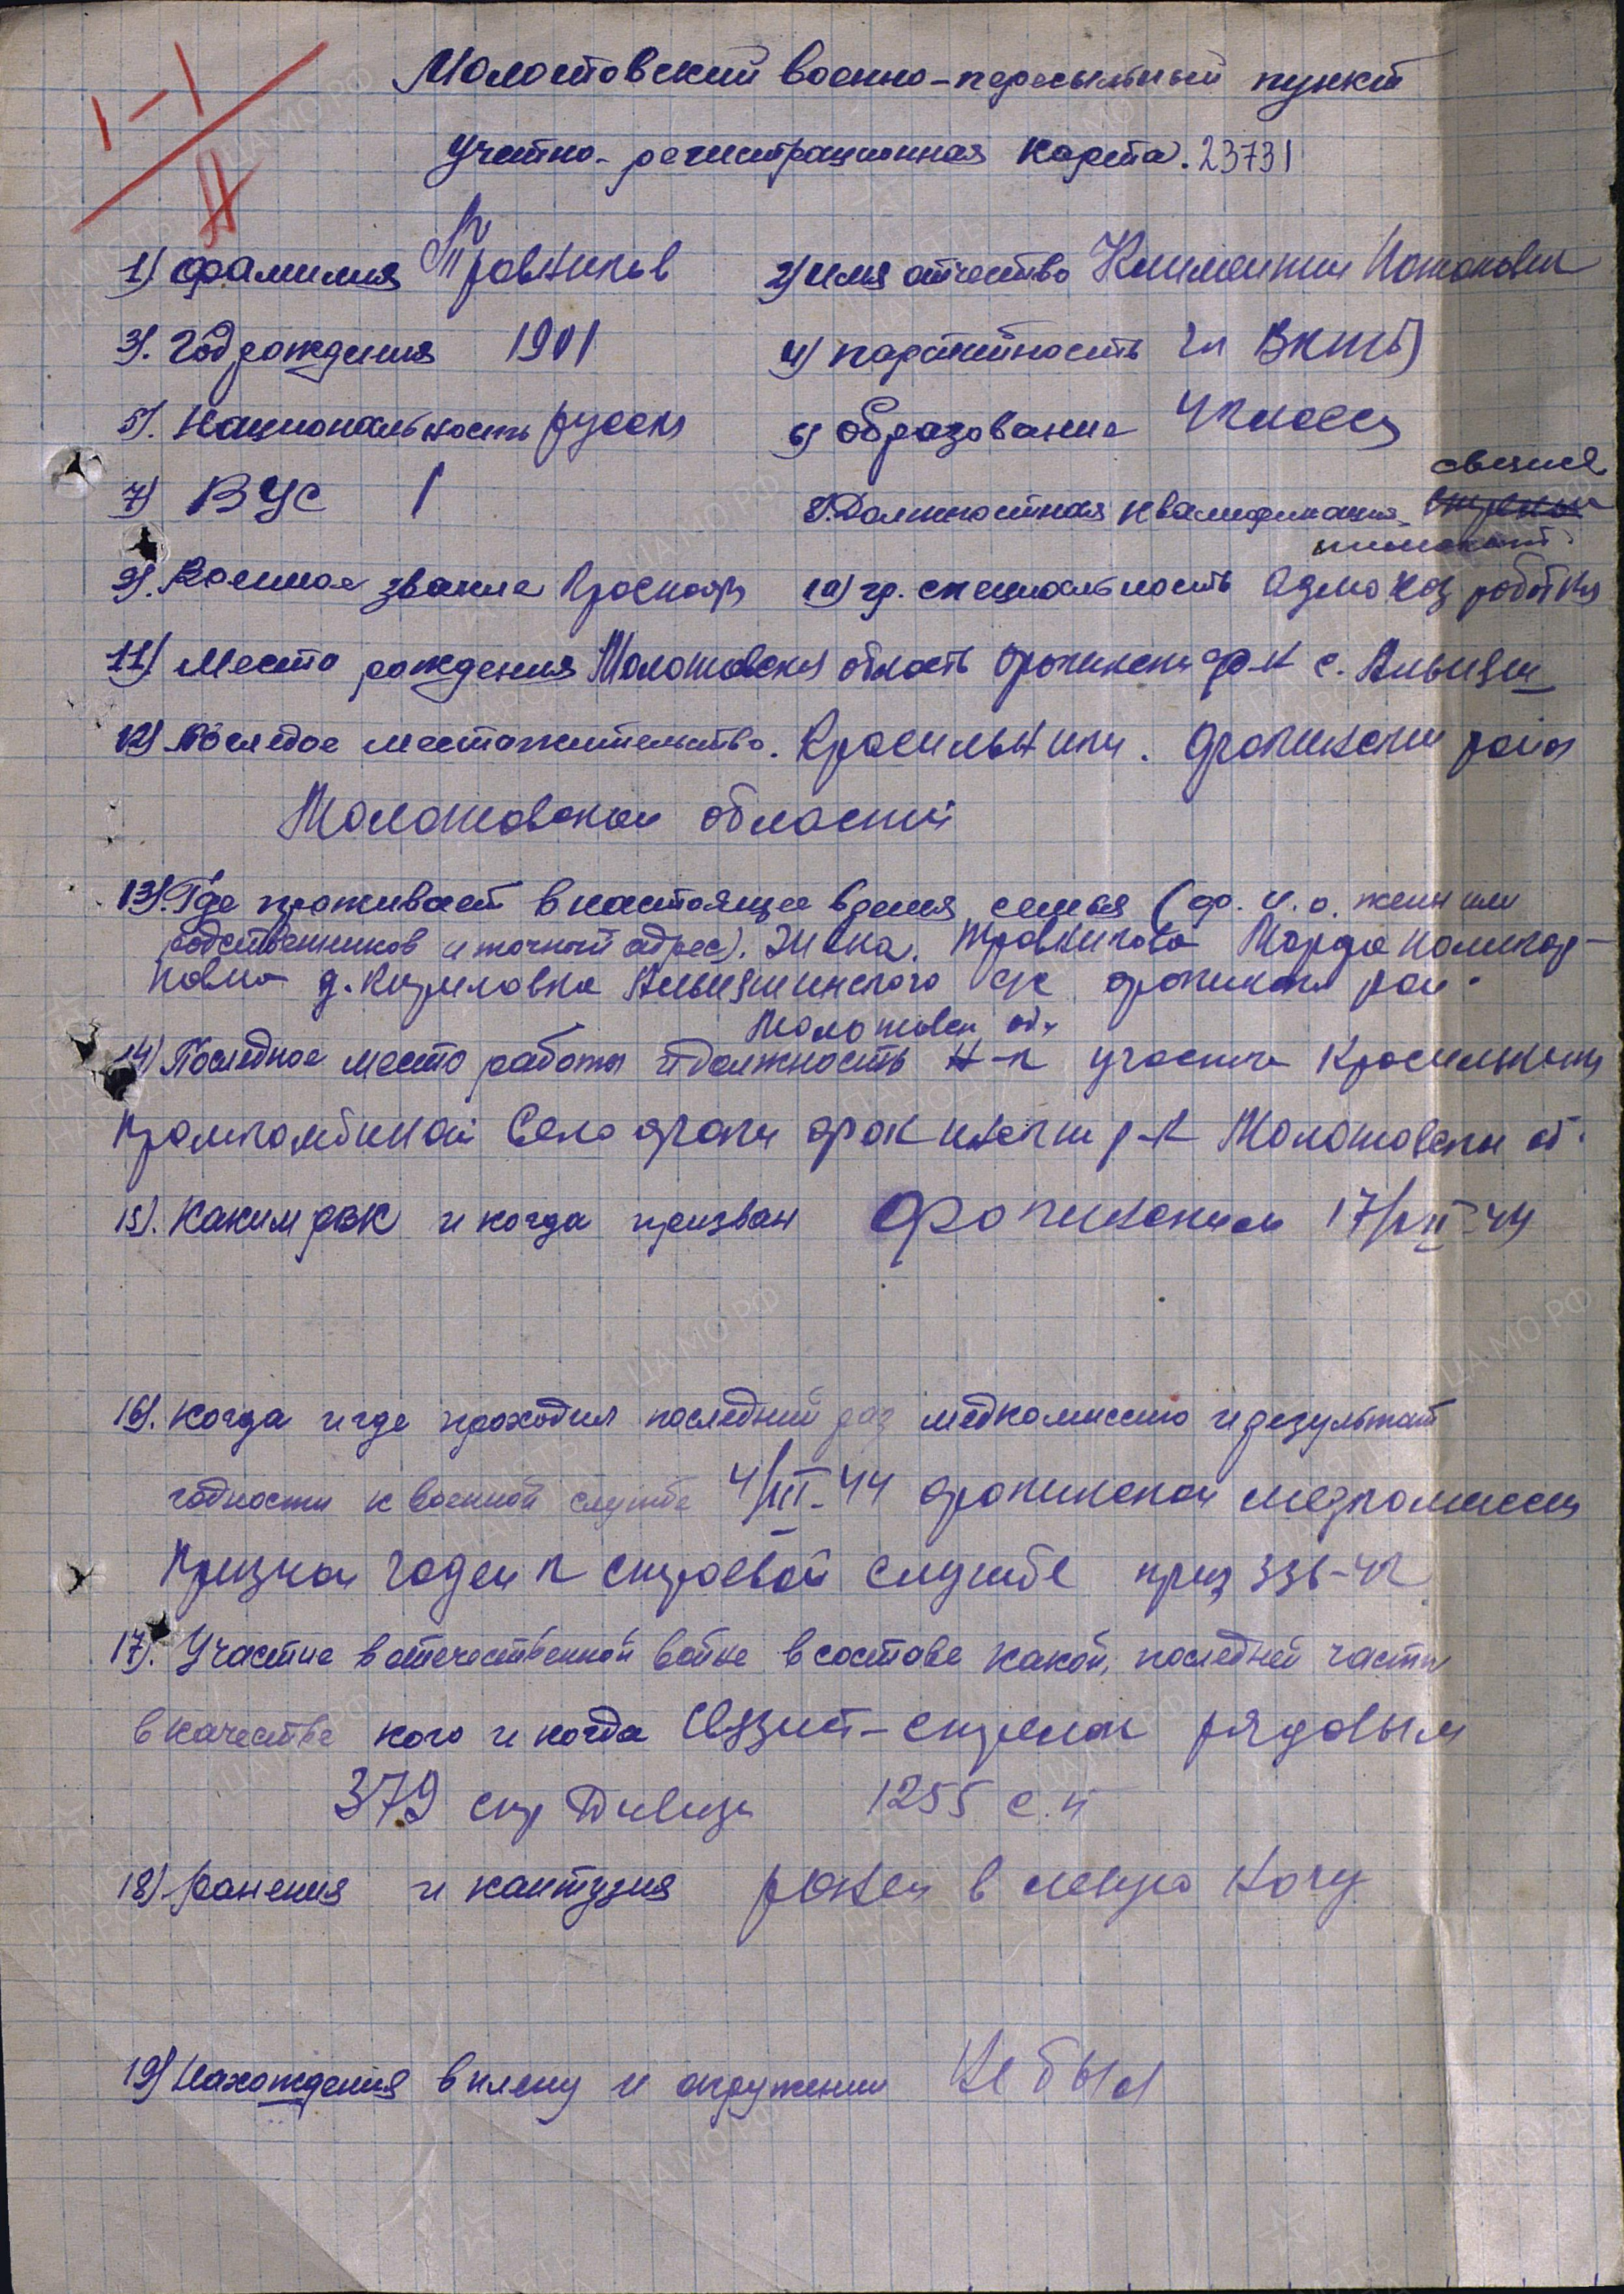 1-1
Молотовский военно-пересыльный пункт
Учетно-регистрационная карта. 23731
1) Фамилия Травников 2) Имя отчество Климентии
3). Год рождения 1901 4) партийность чл ВКПб)
5). Национальность русски 6) образование 4 класса
7) ВУС 1 8). Должностная квалификация-
9). Военное звание Красноар 10) гр. специальность
11) Место рождения Молотовская область р-н с.
12) Последое местожительство. Красильники. район
Молотовской области
13). Где проживает в настоящее время семья (ф. и. о. жены или
родственников и точный адрес). Жена. Травникова Марфа
д. Кириловка с/с рай.
Молотовск об.
14) Последнее место работы и должность Н-к участка
Промкомбинат Село р-н Молотовски об.
15). Каким РВК и когда призван
16). Когда и где проходил последний раз медкомиссию и результат
годности к военной службе 4/III-44 медкомиссии
Признан годен к строевой службе 336-42
17). Участие в отечественной войне в составе какой, последней части
в качестве кого и когда стрелок рядовым
379 стр Дивизи 1255 с.п
18) Ранения и кантузия ранен в левую ногу
19) Нахождения в плену и окружении Не был